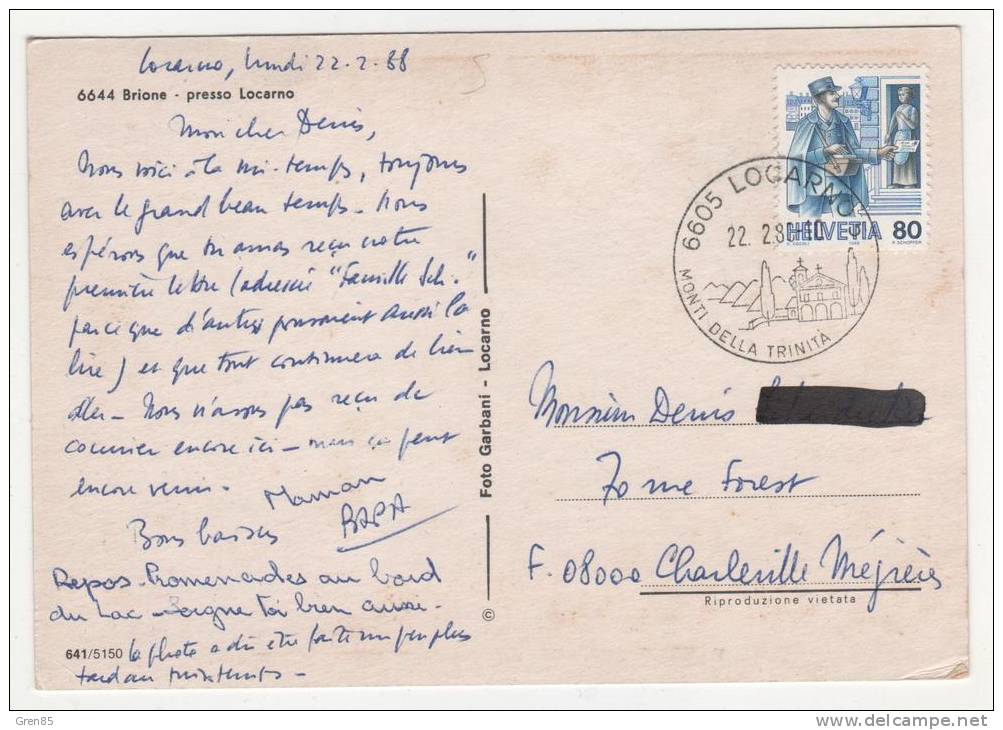 Locarno, lundi 22.2.88
6644 Brione - presso Locarno
Mon cher Denis,
Nous voici à la mi-temps, toujours
avec le grand beau temps. Nous
espérons que tu auras reçu notre
première lettre (adressée "Famille Sch."
parce que d'autres pourraient aussi la
lire) et que tout continuera de bien
aller - Nous n'avons pas reçu de
courrier encore ici - mais ça peut
encore venir.
Maman
Bons baisers
PAPA
Repos - Promenades au bord
du Lac - Soigne toi bien aussi -
641/5150 la photo a dû être faite un peu plus
tard au printemps -
Foto Garbani - Locarno
©
HELVETIA 80
6605 LOCARNO
22. 2.88-10
MONTI DELLA TRINITÀ
Monsieur Denis
70 rue Forest
F. 08000 Charleville Mézières
Riproduzione vietata
Gren85
delcampe.net